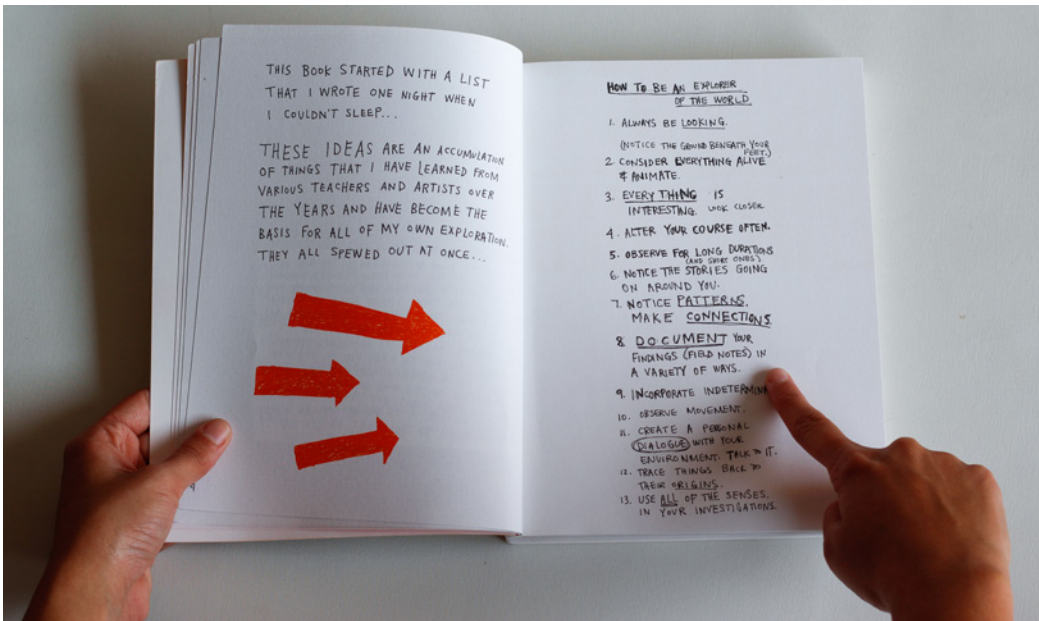 THIS BOOK STARTED WITH A LIST
THAT I WROTE ONE NIGHT WHEN
I COULDN'T SLEEP...
THESE IDEAS ARE AN ACCUMULATION
OF THINGS THAT I HAVE LEARNED FROM
VARIOUS TEACHERS AND ARTISTS OVER
THE YEARS AND HAVE BECOME THE
BASIS FOR ALL OF MY OWN EXPLORATION.
THEY ALL SPEWED OUT AT ONCE...
HOW TO BE AN EXPLORER
OF THE WORLD
1. ALWAYS BE LOOKING.
(NOTICE THE GROUND BENEATH YOUR
FEET.)
2. CONSIDER EVERYTHING ALIVE
& ANIMATE.
3. EVERY THING IS
INTERESTING. LOOK CLOSER.
4. ALTER YOUR COURSE OFTEN.
5. OBSERVE FOR LONG DURATIONS
(AND SHORT ONES)
6. NOTICE THE STORIES GOING
ON AROUND YOU.
7. NOTICE PATTERNS.
MAKE CONNECTIONS
8. DOCUMENT YOUR
FINDINGS (FIELD NOTES) IN
A VARIETY OF WAYS.
9. INCORPORATE
10. OBSERVE MOVEMENT.
11. CREATE A PERSONAL
DIALOGUE WITH YOUR
ENVIRONMENT. TALK TO IT.
12. TRACE THINGS BACK TO
THEIR ORIGINS.
13. USE ALL OF THE SENSES.
IN YOUR INVESTIGATIONS.